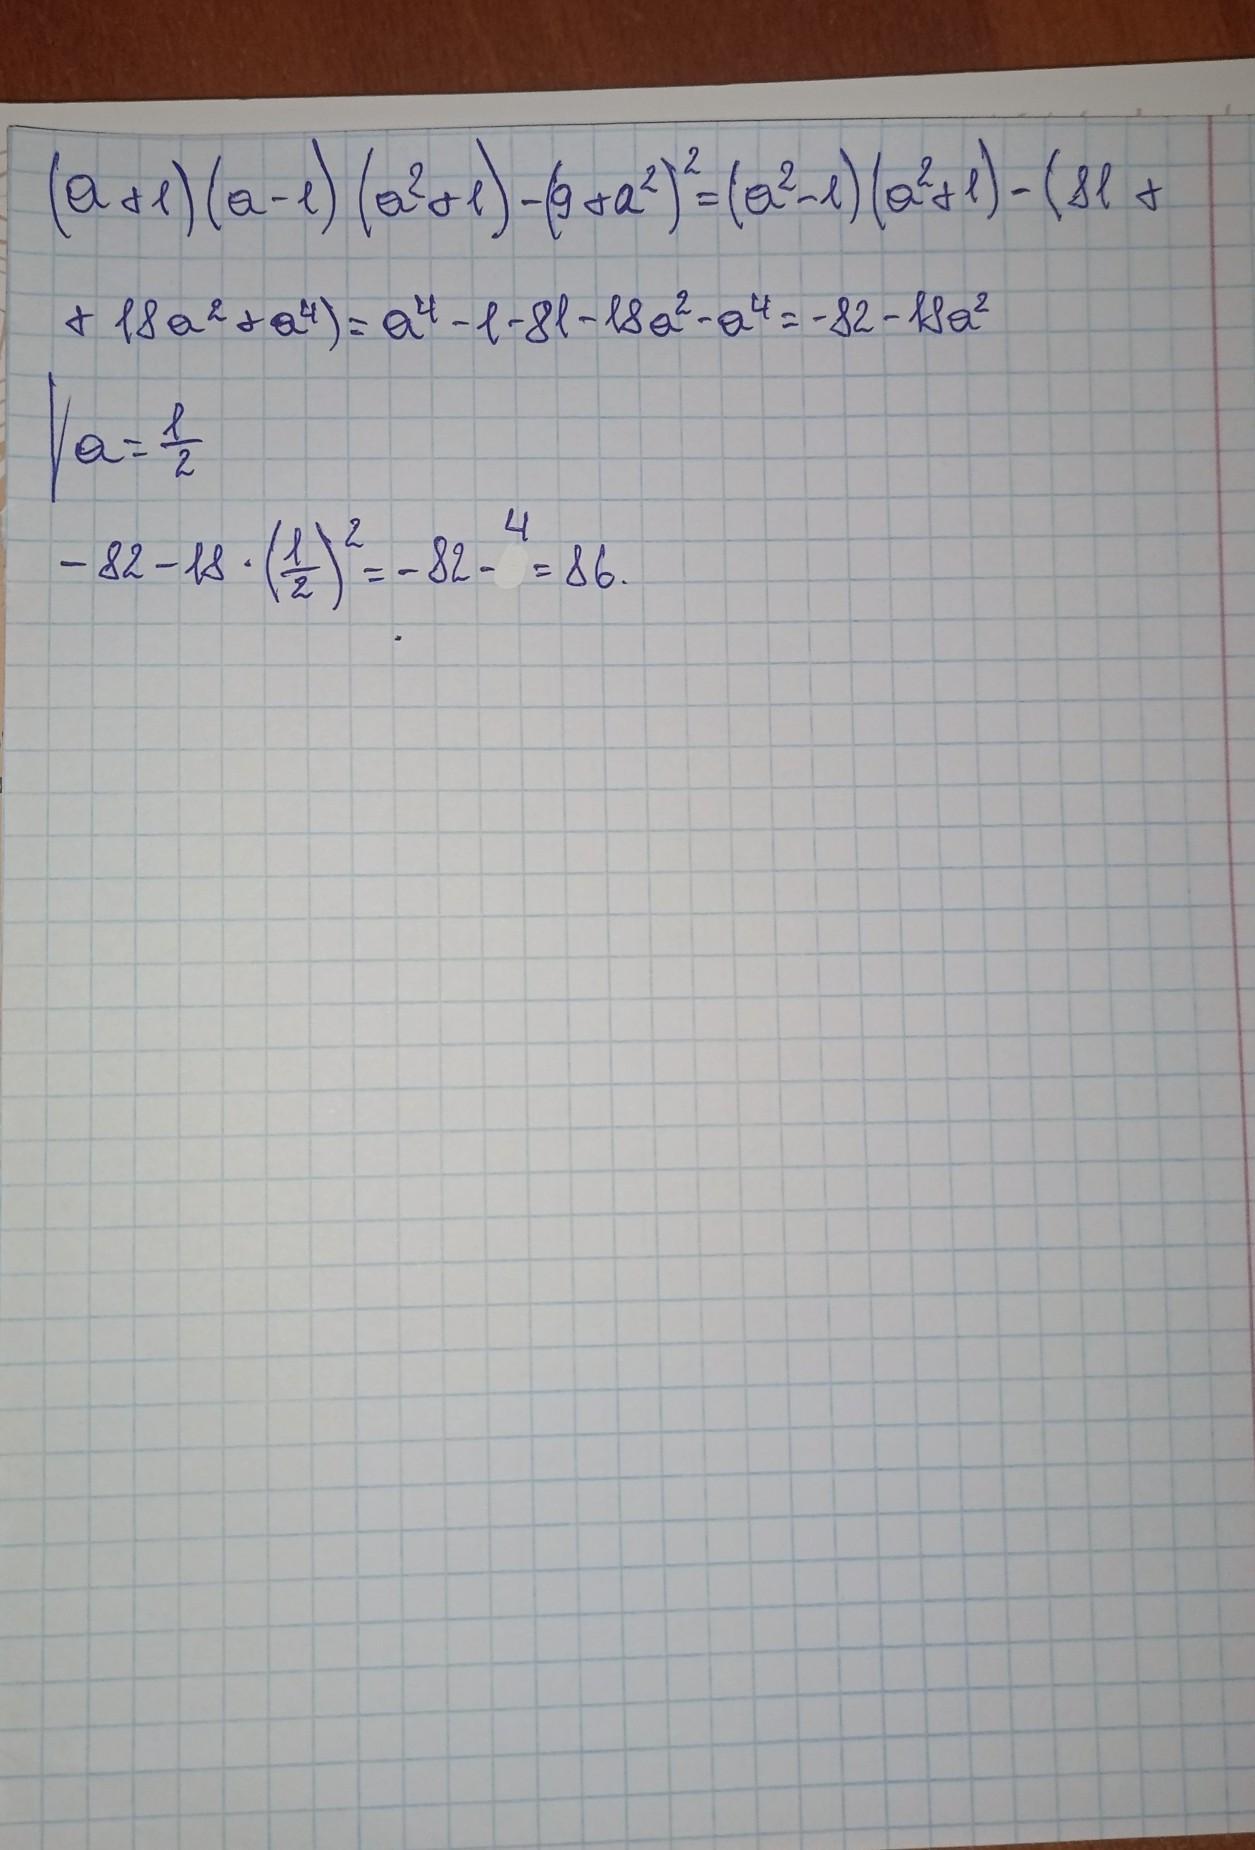 (a+1)(a-1)(a²+1)-(9+a²)²=(a²-1)(a²+1)-(81+
+18a²+a⁴)=a⁴-1-81-18a²-a⁴=-82-18a²
a=1/2
-82-18·(1/2)²=-82-4=86.